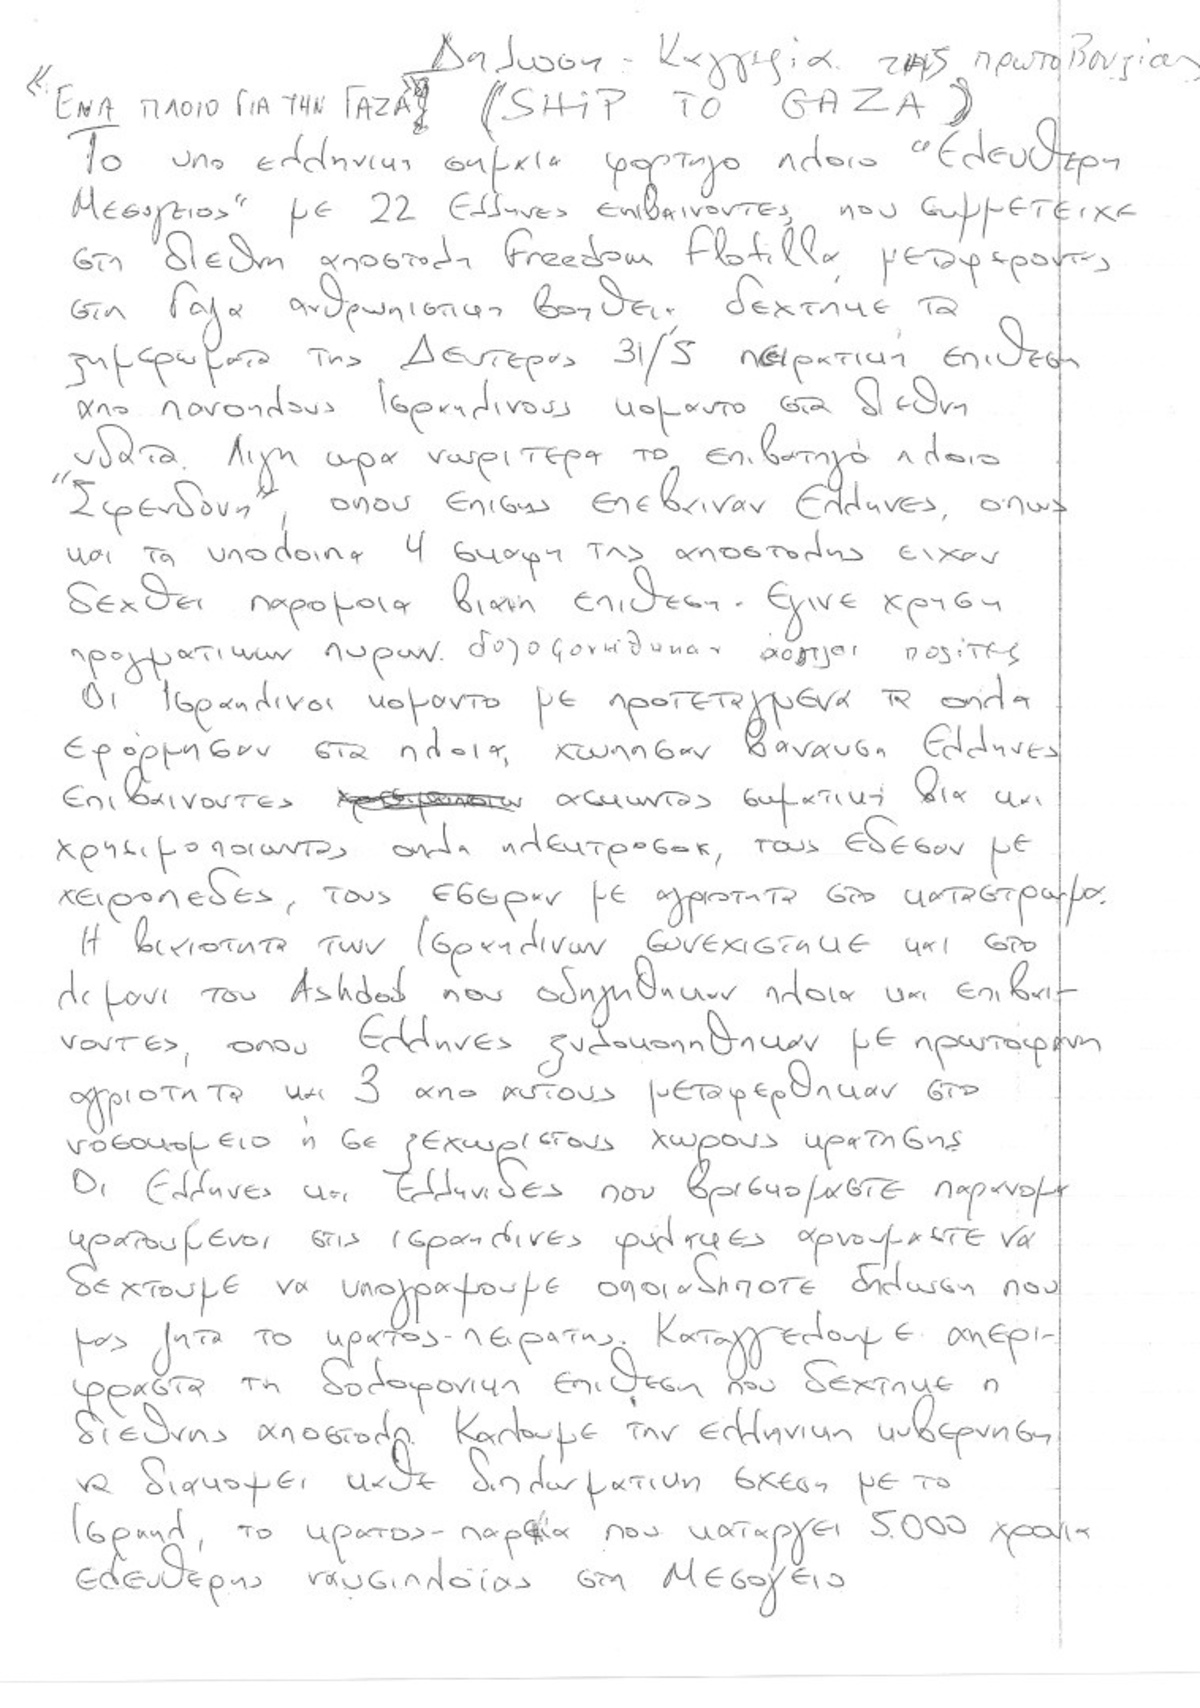 Δηλωση - Καγγελία της πρωτοβουλίας
"ΕΝΑ ΠΛΟΙΟ ΓΙΑ ΤΗΝ ΓΑΖΑ" (SHIP TO GAZA)
Το υπο ελληνικη σημαια φορτηγο πλοιο "Ελευθερη
Μεσογειος" με 22 Ελληνες επιβαινοντες, που συμμετειχε
στη διεθνη αποστολη Freedom Flotilla, μεταφεροντας
στη Γαζα ανθρωπιστικη βοηθεια, δεχτηκε τα
ξημερωματα της Δευτερας 31/5 πειρατικη επιθεση
απο πανοπλους Ισραηλινους κομαντο στα διεθνη
υδατα. Λιγη ωρα νωριτερα το επιβατηγό πλοιο
"Σφενδόνη", οπου επισης επεβαιναν Ελληνες, οπως
και τα υπολοιπα 4 σκαφη της αποστολης ειχαν
δεχθει παρομοια βιαιη επιθεση. Εγινε χρηση
πραγματικων πυρων. δολοφονήθηκαν άοπλοι πολίτες
Οι Ισραηλινοι κομαντο με προτεταγμενα τα οπλα
εφόρμησαν στα πλοια, χτυπησαν βαναυση Ελληνες
επιβαινοντες ασκωντας σωματική βια και
χρησιμοποιωντας οπλα ηλεκτροσοκ, τους εδεσαν με
χειροπεδες, τους εσειραν με αγριοτητα στο καταστρωμα.
Η βιαιοτητα των Ισραηλινων συνεχιστηκε και στο
λιμανι του Ashdod που οδηγηθηκαν πλοια και επιβαι-
νοντες, οπου Ελληνες ξυλοκοπηθηκαν με πρωτοφανη
αγριοτητα και 3 απο αυτους μεταφερθηκαν στο
νοσοκομειο ή σε ξεχωριστους χωρους κρατησης
Οι Ελληνες και Ελληνιδες που βρισκομαστε παρανομα
κρατουμενοι στις ισραηλινες φυλακες αρνουμαστε να
δεχτουμε να υπογραψουμε οποιαδηποτε δηλωση που
μας ζητα το κρατος-πειρατης. Καταγγελουμε απερι-
φραστα τη δολοφονικη επιθεση που δεχτηκε η
διεθνης αποστολη. Καλουμε την ελληνικη κυβερνηση
να διακοψει καθε διπλωματικη σχεση με το
Ισραηλ, το κρατος-παρεία που καταργει 5.000 χρονια
ελευθερης ναυσιπλοϊας στη Μεσογειο